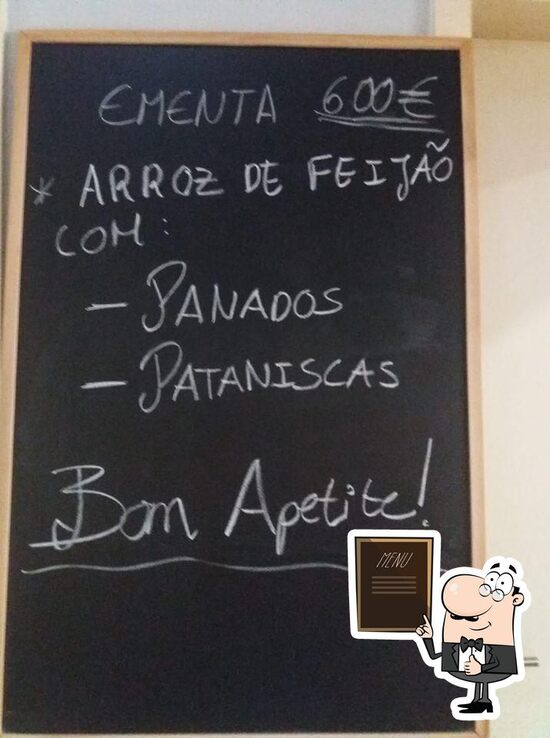 EMENTA 600€
* ARROZ DE FEIJÃO
COM:
- PANADOS
- PATANISCAS
Bom Apetite!
MENU